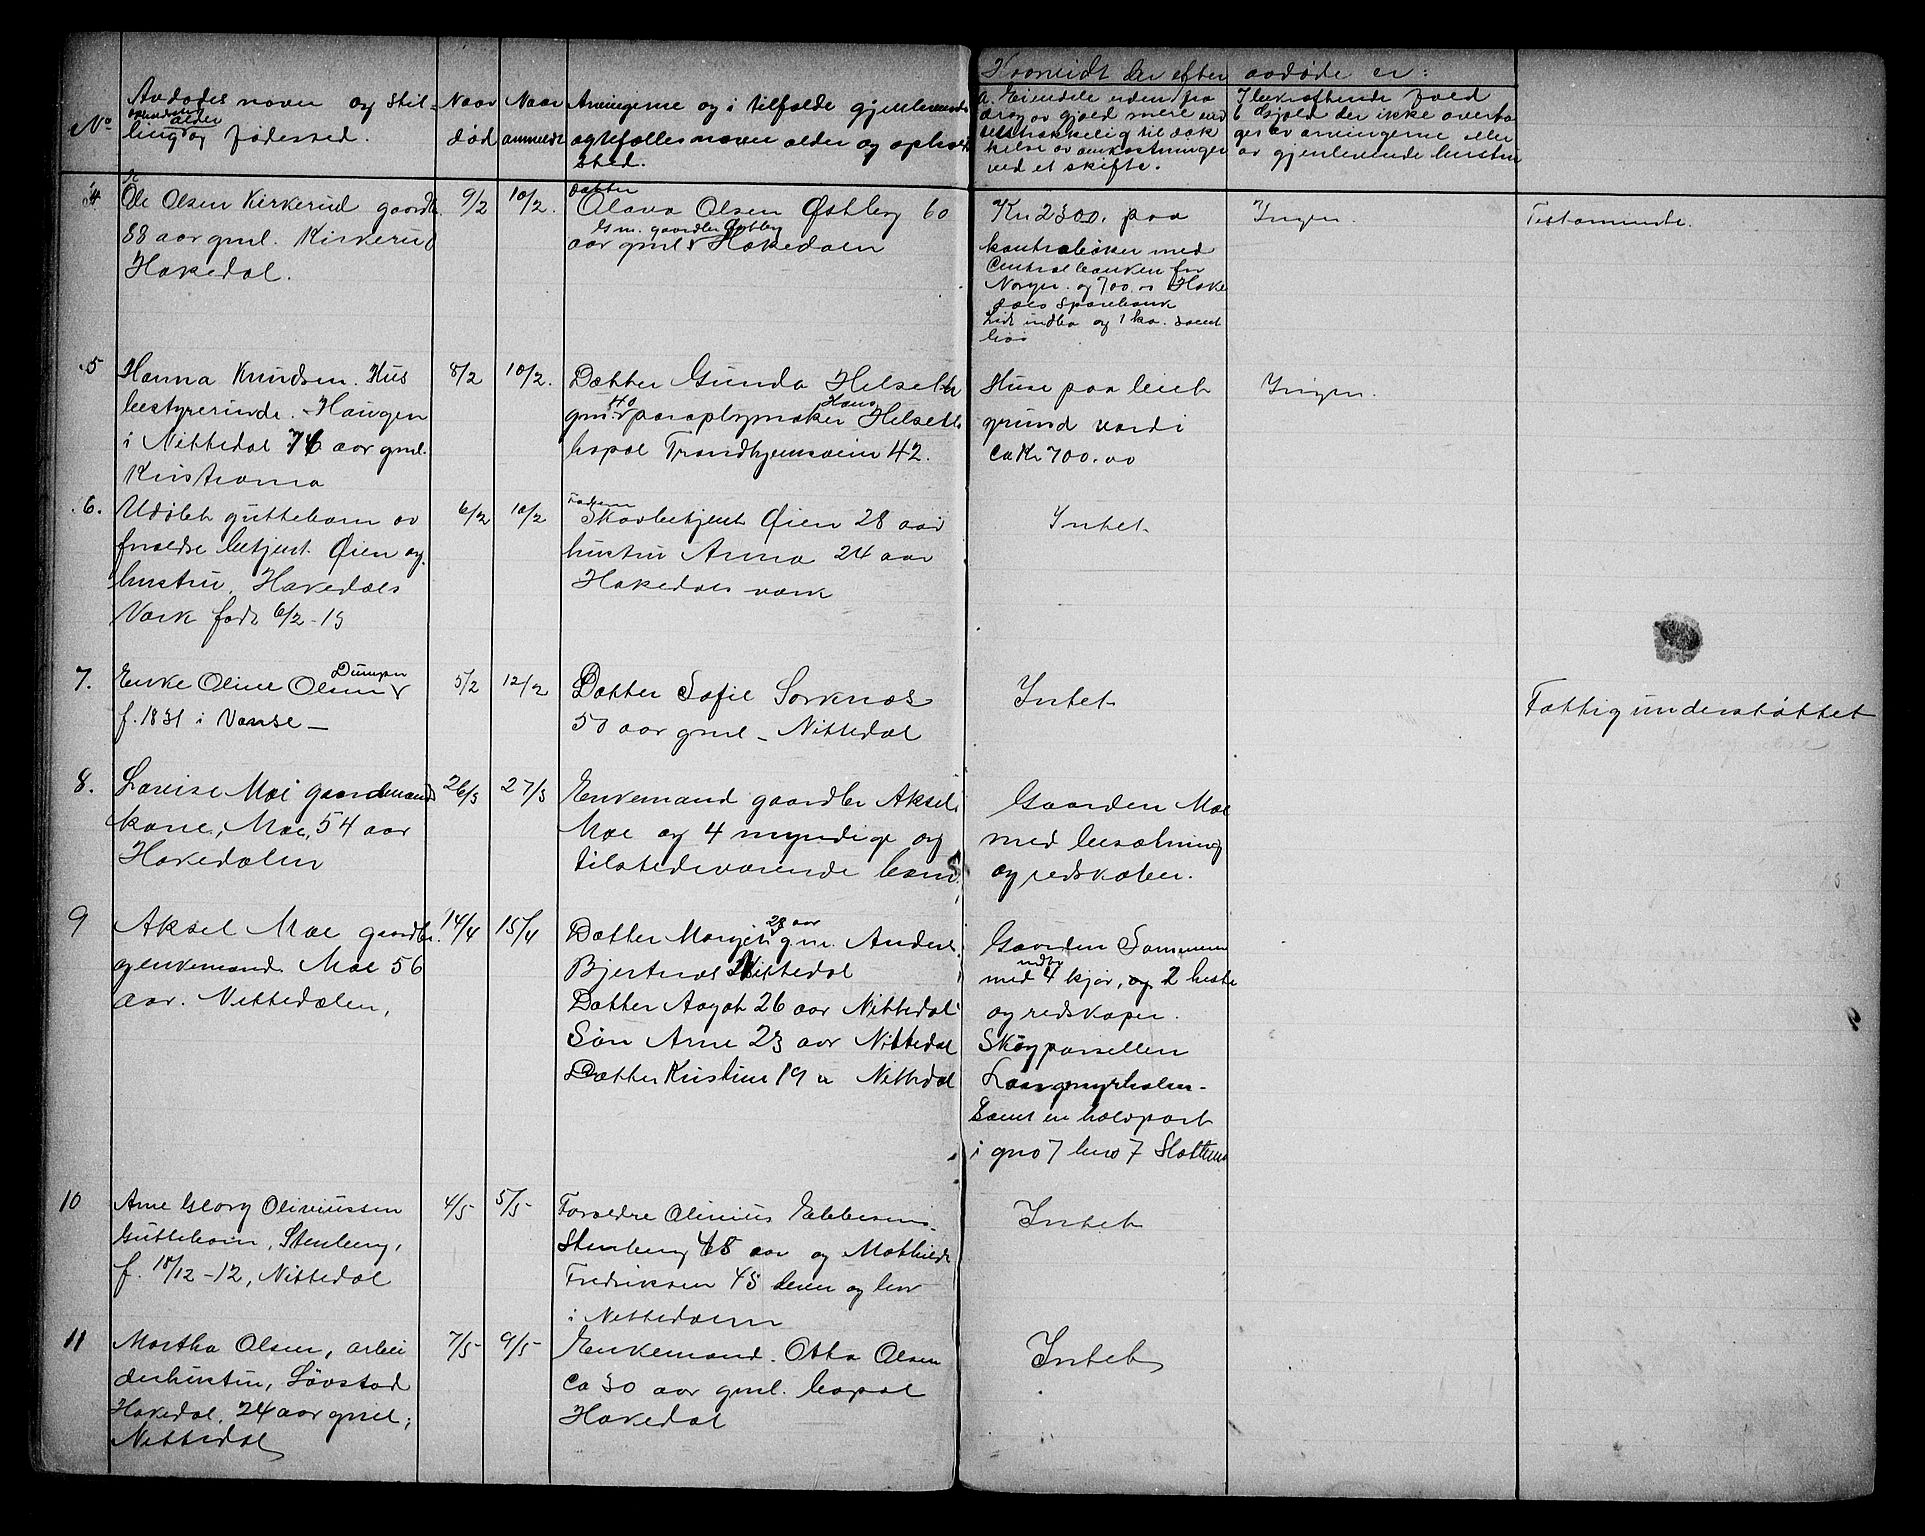 No
Avdødes navn og stil-
opholdssted alder
ling og fødested.
Naar
død
Naar
anmeldt
Arvingerne og i tilfælde gjenlevende
ægtefælles navn alder og opholds
sted.
Hvorvidt der efter avdøde er:
a. Eiendele uden fra
drag av gjæld mere end
utstrækkelig til dæk
kelse av omkostninger
ved et skifte.
I bekræftende fald
b Gjæld der ikke overta
ges av arvingerne eller
av gjenlevende hustru
4
Ole Olsen Kirkerud gaardbr.
88 aar gml. Kirkerud
Hakedal.
9/2
10/2.
Datter
Olava Olsen Østby 60
gm. gaardbr Østby
aar gml Hakedalen
Kr 2300. paa
kontrabøker med
Centralbanken for
Norge. og 700.00 Hake
dals Sparebank
Lidt indbo og 1 ko. samt
høi
Ingen.
Testamente.
5
Hanna Knudsen. Hus
bestyrerinde. Haugen
i Nittedal 76 aar gml.
Kristiania
8/2
10/2.
Datter Gunda Helseth
40 Hans
gm. paraplymaker Helseth
bopæl Trondhjemsvein 42.
Huse paa leiet
grund værdi
ca Kr 700.00
Ingen.
6.
Udøbt guttebarn av
forældre betjent Øien og
hustru, Hakedals
Værk født 6/2-15
6/2
10/2
Fadren
Skovbetjent Øien 28 aar
hustru Anna 24 aar
Hakedals værk
Intet
7.
Dumpen
Enke Oline Olsen
f. 1831 i Vanse
5/2
12/2
Datter Sofie Sørknæs
50 aar gml - Nittedal
Intet
Fattigunderstøttet
8.
Lovise Moe gaardmands
kone, Moe, 54 aar
Hakedalen
26/3
27/3
Enkemand gaardbr Aksel
Moe og 4 myndige og
tilstedeværende barn
Gaarden Moe
med besætning
og redskaber.
9
Aksel Moe gaardbr.
og enkemand Moe 56
aar. Nittedalen,
14/4
15/4
28 aar
Datter Margit gm. Anders
Bjertnæs Nittedal
Datter Aagot 26 aar Nittedal
Søn Arne 23 aar Nittedal
Datter Kristine 19 " Nittedal
Gaarden Sammen
indbo
med 4 kjør, og 2 heste
og redskaper.
Skogparsellen
Langmyrholen-
Samt en halvpart
i gno 7 bno 7 Slattum
10
Arne Georg Oliviussen
Guttebarn, Stenberg,
f. 18/12-12, Nittedal
4/5
5/5
Forældre Olivius Ebbesen
Stenberg 48 aar og Mathilde
Fredriksen 45 bor
i Nittedalen
Intet
11
Martha Olsen, arbei
derhustru, Løvstad
Hakedal. 24 aar gml,
Nittedal
7/5
9/5
Enkemand. Otto Olsen
ca 30 aar gml. bopæl
Hakedal
Intet